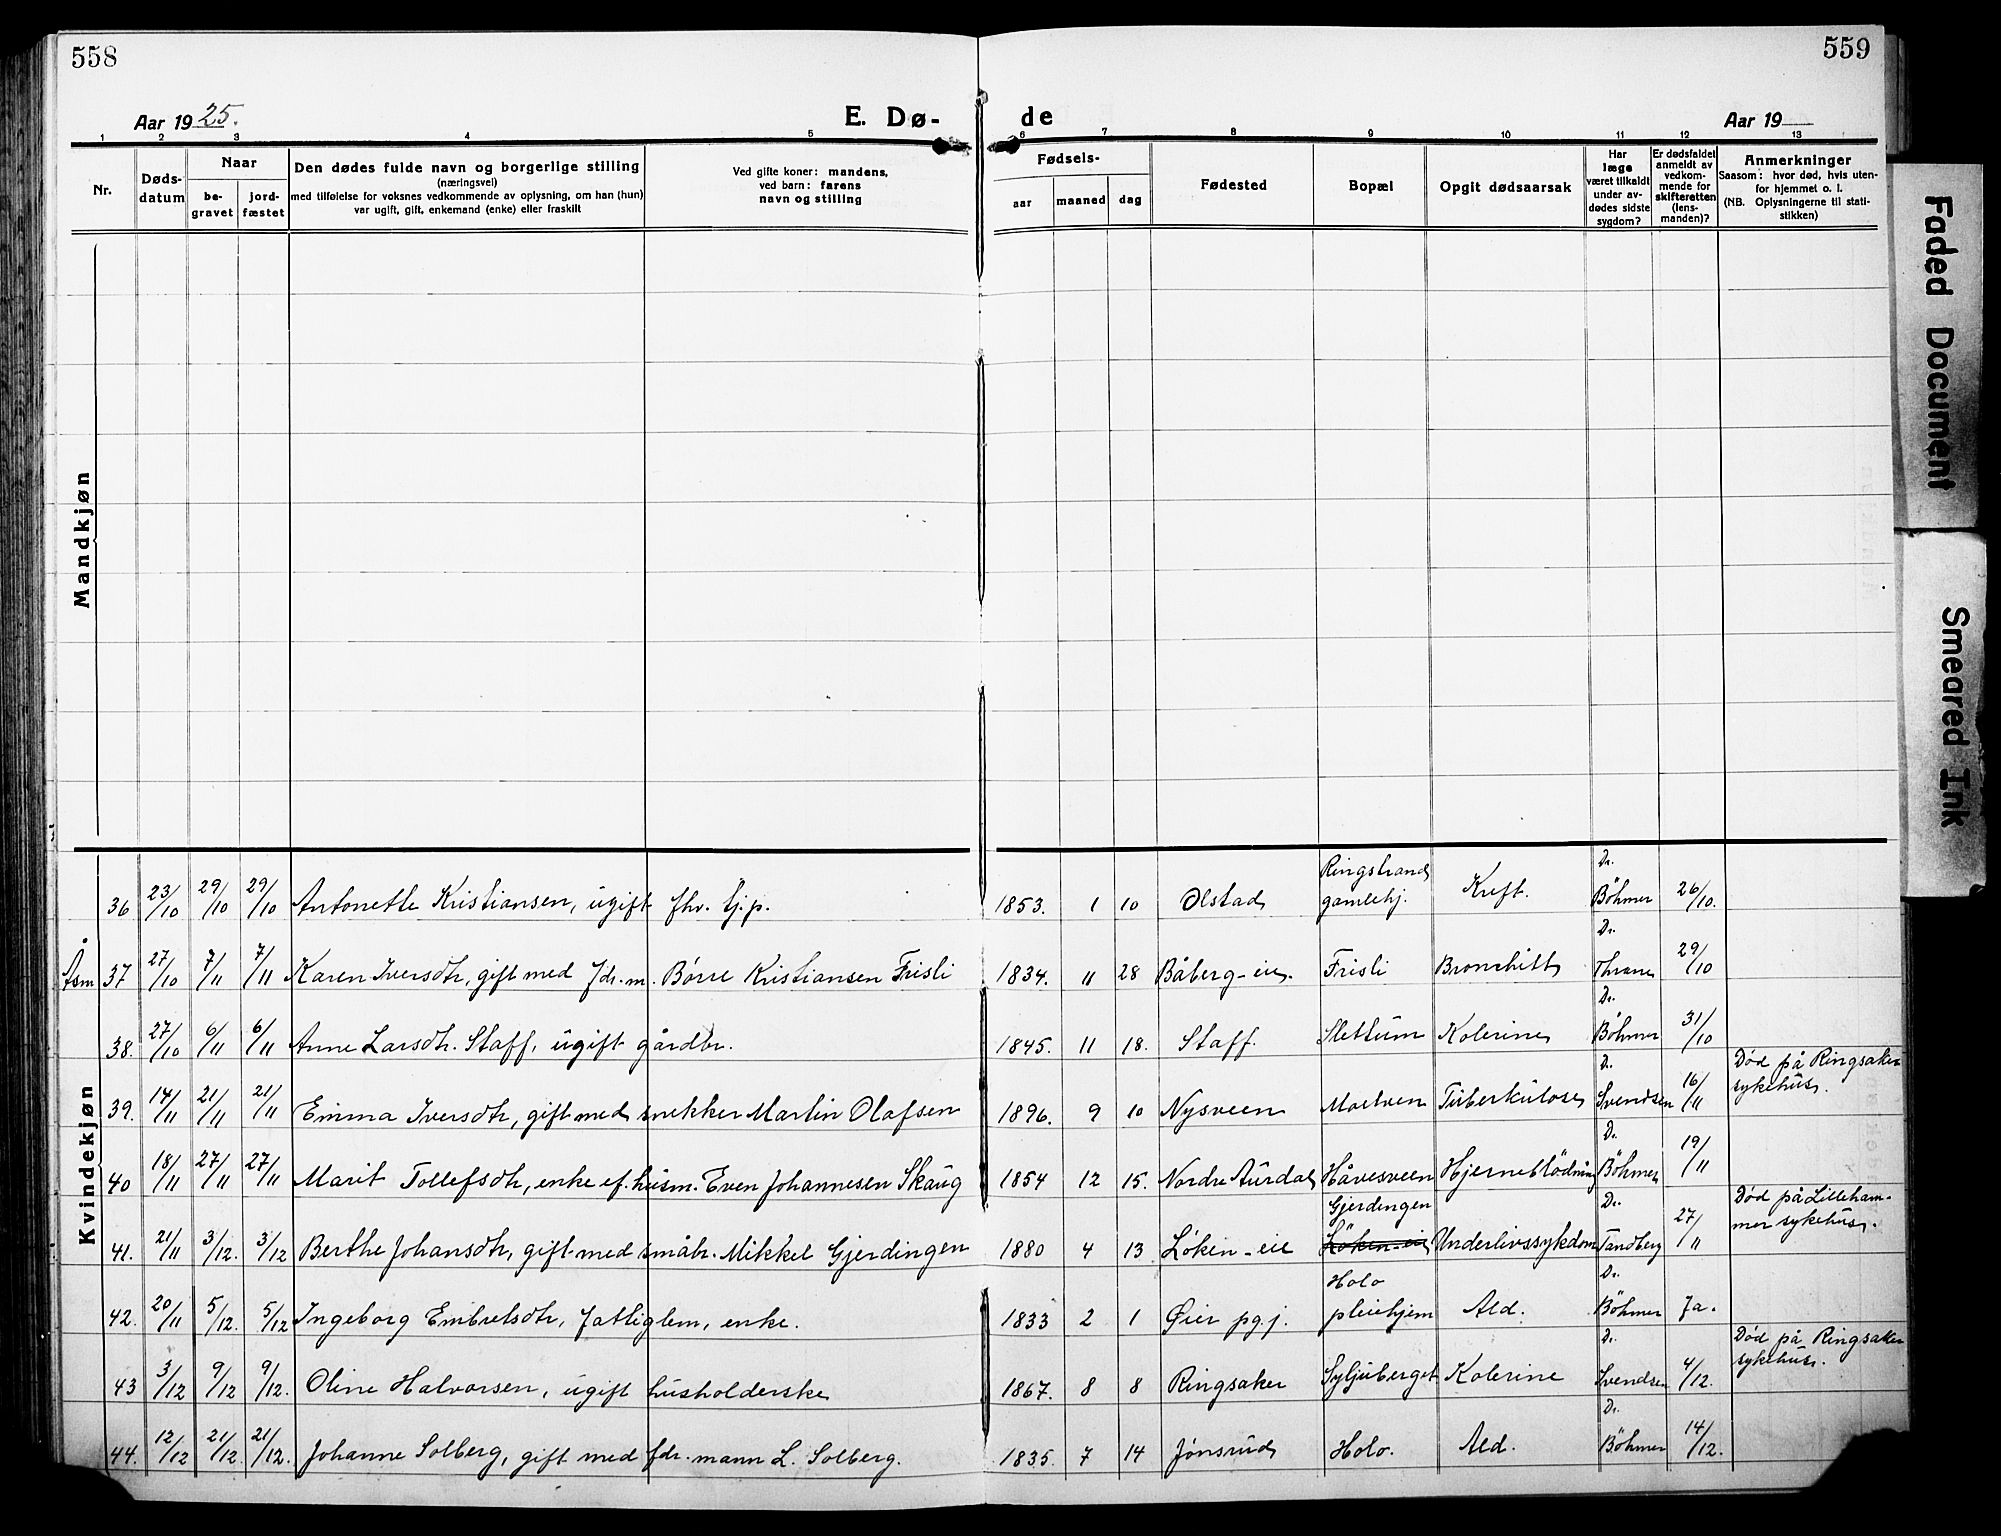 558
559
Aar 1925.
E. Dø-
de
Aar 19
1 2 3 4 5 6 7 8 9 10 11 12 13
Nr.
Døds-
datum
Naar
be-
gravet
jord-
fæstet
Den dødes fulde navn og borgerlige stilling
(næringsvei)
med tilføielse for voksnes vedkommende av oplysning, om han (hun)
var ugift, gift, enkemand (enke) eller fraskilt
Ved gifte koner: mandens,
ved barn: farens
navn og stilling
Fødsels-
aar
maaned
dag
Fødested
Bopæl
Opgit dødsaarsak
Har
læge
været tilkaldt
under av-
dødes sidste
sygdom?
Er dødsfaldet
anmeldt av
vedkom-
mende for
skifteretten
(lens-
manden)?
Anmerkninger
Saasom: hvor død, hvis uten-
for hjemmet o. l.
(NB. Oplysningerne til stati-
stikken)
Mandkjøn
Kvindekjøn
36 23/10 29/10 29/10 Antonette Kristiansen, ugift fhv. tj.p. 1853. 1 10 Olstad Ringstrand gamlehj. Kreft. Dr. Böhmer 26/10.
Asm 37 27/10 7/11 7/11 Karen Iversdtr, gift med fdr.m. Børre Kristiansen Frisli 1834. 11 28 Båberg-eie. Frisli Bronchitt Dr. Thrane 29/10
38. 27/10 6/11 6/11 Anne Larsdtr. Staff, ugift gårdbr. 1845. 11 18. Staff. Slettum Kolerine Dr. Böhmer 31/10
39. 14/11 21/11 21/11 Emma Iversdtr, gift med snekker Martin Olafsen 1896. 9 10 Nysveen Moelven Tuberkulose Dr. Svendsen 16/11 Død på Ringsaker sykehus.
40 18/11 27/11 27/11 Marit Tollefsdtr, enke ef. husm. Even Johannesen Skaug 1854 12 15. Nordre Aurdal Håvesveen Hjerneblödning Dr. Böhmer 19/11
41. 21/11 3/12. 3/12 Berthe Johansdtr, gift med småbr. Mikkel Gjerdingen 1880 4 13 Løken-eie Gjerdingen Løken-eie Underlivssykdom Dr. Tandberg 27/11 Død på Lilleham-mer sykehus.
42. 20/11 5/12. 5/12 Ingeborg Embretsdtr, fattiglem, enke. 1833 2 1 Øier pg.j. Holo pleiehjem Ald. Dr. Böhmer Ja.
43 3/12 9/12 9/12. Oline Halvorsen, ugift husholderske 1867. 8 8 Ringsaker Syljuberget Kolerine Dr. Svendsen 4/12. Død på Ringsaker sykehus.
44. 12/12 21/12. 21/12. Johanne Solberg, gift med fdr. mann L. Solberg. 1835. 7 14 Jønsrud Holo. Ald. Dr. Böhmer 14/12.
Faded Document
Smeared Ink